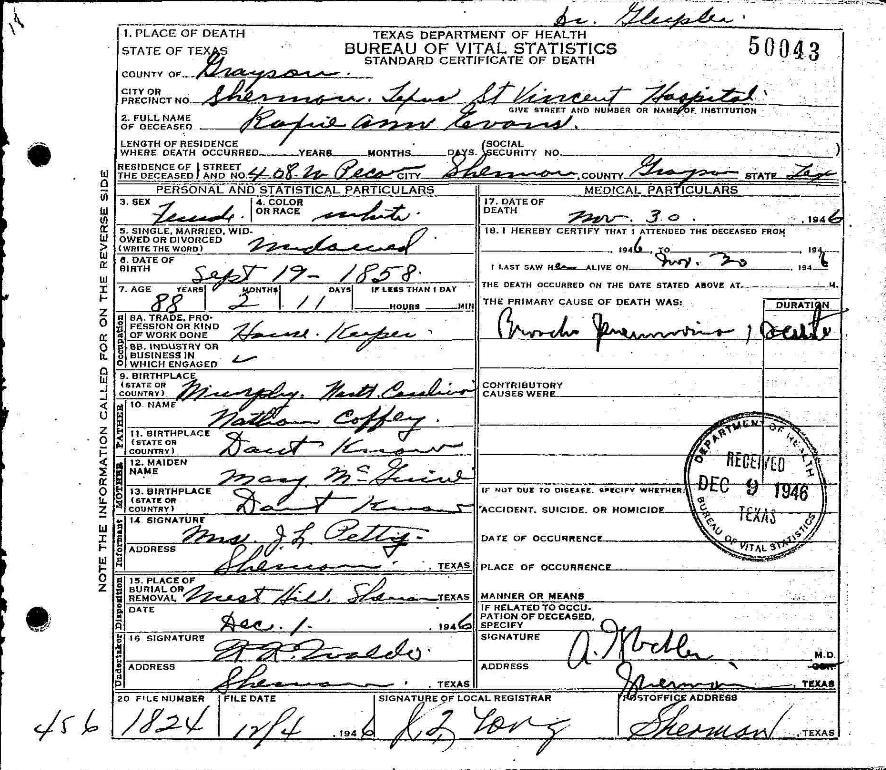 Dr.
50043
1. PLACE OF DEATH
STATE OF TEXAS
TEXAS DEPARTMENT OF HEALTH
BUREAU OF VITAL STATISTICS
STANDARD CERTIFICATE OF DEATH
COUNTY OF Grayson.
CITY OR
PRECINCT NO. Sherman. Texas St Vincent Hospital.
GIVE STREET AND NUMBER OR NAME OF INSTITUTION
2. FULL NAME
OF DECEASED Ann Evans.
LENGTH OF RESIDENCE
WHERE DEATH OCCURRED YEARS MONTHS DAYS. (SOCIAL
SECURITY NO. )
RESIDENCE OF STREET
THE DECEASED AND NO. 408. W Pecan CITY Sherman COUNTY Grayson STATE Tex
NOTE THE INFORMATION CALLED FOR ON THE REVERSE SIDE
PERSONAL AND STATISTICAL PARTICULARS
3. SEX Female. 4. COLOR
OR RACE white.
5. SINGLE, MARRIED, WID-
OWED OR DIVORCED
(WRITE THE WORD) Widowed
6. DATE OF
BIRTH Sept 19- 1858.
7. AGE YEARS MONTHS DAYS IF LESS THAN 1 DAY
88 2 11 HOURS MIN
Occupation
8A. TRADE, PRO-
FESSION OR KIND
OF WORK DONE House. Keeper.
8B. INDUSTRY OR
BUSINESS IN
WHICH ENGAGED
9. BIRTHPLACE
(STATE OR
COUNTRY) Murphy. North Carolina
FATHER
10. NAME
Nathan Coffey.
11. BIRTHPLACE
(STATE OR
COUNTRY) Dont Know
MOTHER
12. MAIDEN
NAME Mary
13. BIRTHPLACE
(STATE OR
COUNTRY) Dont Know
Informant
14. SIGNATURE
Mrs. J. L. Petty.
ADDRESS
Sherman. TEXAS
Disposition
15. PLACE OF
BURIAL OR
REMOVAL West Hill. Sherman TEXAS
DATE
Dec. 1. 1946
Undertaker
16 SIGNATURE
Waldo.
ADDRESS
Sherman TEXAS
MEDICAL PARTICULARS
17. DATE OF
DEATH Nov. 30. , 1946
18. I HEREBY CERTIFY THAT I ATTENDED THE DECEASED FROM
1946 TO 194
I LAST SAW Her ALIVE ON Nov. 30 1946
THE DEATH OCCURRED ON THE DATE STATED ABOVE AT M.
THE PRIMARY CAUSE OF DEATH WAS: DURATION
Broncho Pneumonia acute
CONTRIBUTORY
CAUSES WERE
DEPARTMENT OF HEALTH
RECEIVED
DEC 9 1946
TEXAS
BUREAU OF VITAL STATISTICS
IF NOT DUE TO DISEASE, SPECIFY WHETHER:
ACCIDENT, SUICIDE, OR HOMICIDE
DATE OF OCCURRENCE
PLACE OF OCCURRENCE
MANNER OR MEANS
IF RELATED TO OCCU-
PATION OF DECEASED,
SPECIFY
SIGNATURE A. M.D.
ADDRESS Sherman TEXAS
20 FILE NUMBER FILE DATE SIGNATURE OF LOCAL REGISTRAR POSTOFFICE ADDRESS
456 1824 12/4 1946 Long Sherman TEXAS